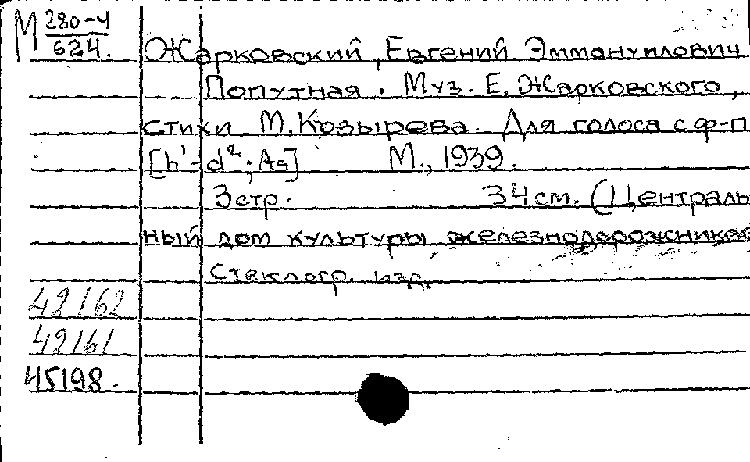 М 280-4
624.
Жарковский, Евгений Эммануилович
Попутная. Муз. Е. Жарковского,
стихи М. Козырева. Для голоса с ф-п
[h¹-d²; As] М., 1939.
3 стр. 34 см. (Централь
ный дом культуры железнодорожников
Стеклогр. изд.
42162
42161
45198.